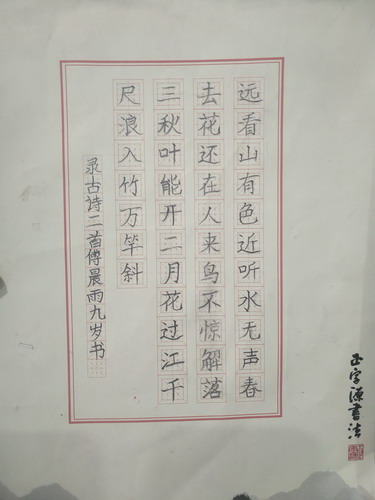 远看山有色近听水无声春
去花还在人来鸟不惊解落
三秋叶能开二月花过江千
尺浪入竹万竿斜
录古诗二首傅晨雨九岁书
正字源书法